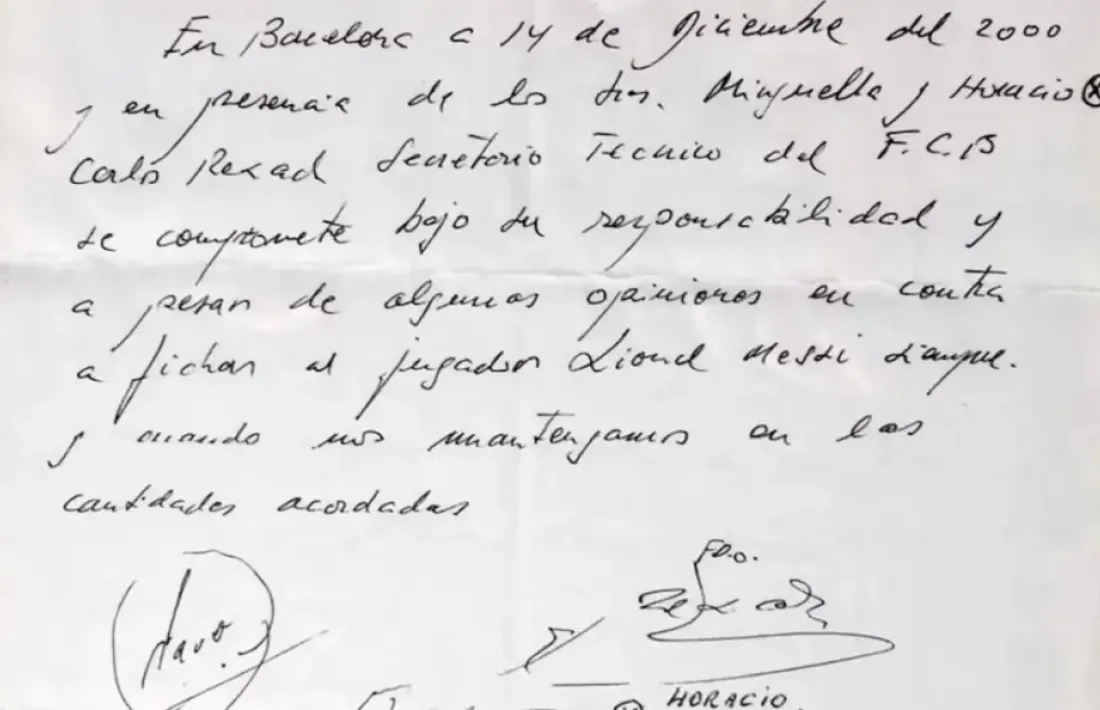 En Barcelona a 14 de Diciembre del 2000
y en presencia de los Srs. Minguella y Horacio
Carlos Rexad Secretario Tecnico del F.C.B
se compromete bajo su responsabilidad y
a pesar de algunas opiniones en contra
a fichar al jugador Lionel Messi siempre.
y cuando nos mantengamos en las
cantidades acordadas
FDO.
HORACIO